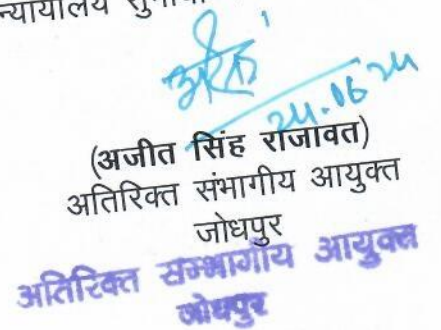 न्यायालय
24.06.24
(अजीत सिंह राजावत)
अतिरिक्त संभागीय आयुक्त
जोधपुर
अतिरिक्त सम्भागीय आयुक्त
जोधपुर